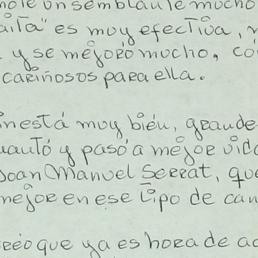 un semblante mucho
es muy efectiva,
y se mejoró mucho, co
cariñosos para ella.
está muy bién, grande
y pasó a mejor vida
Joan Manuel Serrat, que
mejor en ese tipo de can
creo que ya es hora de ac